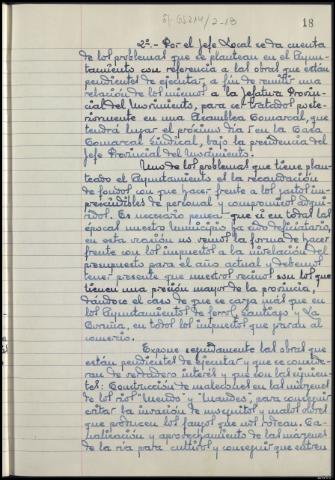 18
2º.- Por el Jefe Local se da cuenta
de los problemas que se plantean en el Ayun-
tamiento con referencia a las obras que están
pendientes de ejecutar, a fin de remitir una
relación de los mismos a la Jefatura Provin-
cial del Movimiento, para ser tratados poste-
riormente en una Asamblea Comarcal, que
tendrá lugar el próximo día 5 en la Casa
Comarcal Sindical, bajo la presidencia del
Jefe Provincial del Movimiento.
Uno de los problemas que tiene plan-
teado el Ayuntamiento es la recaudación
de fondos con que hacer frente a los gastos im-
prescindibles de personal y compromisos adqui-
ridos. Es necesario pensar que si en todas las
épocas nuestro Municipio ha sido deficitario,
en esta ocasión no vemos la forma de hacer
frente con los impuestos a la nivelación del
presupuesto para el año actual y debemos
tener presente que nuestros vecinos son los que
tienen una presión mayor de la provincia,
dándose el caso de que se carga más que en
los Ayuntamientos de Ferrol, Santiago y La
Coruña, en todos los impuestos que gravan al
comercio.
Expone seguidamente las obras que
están pendientes de ejecutar y que se conside-
ran de verdadero interés y que son las siguien-
tes: Construcción de malecones en las márgenes
de los ríos "Mendo" y "Mandeo", para conseguir
evitar la invasión de mosquitos y malos olores
que producen los fangos que nos rodean. Ca-
nalización y aprovechamiento de las márgenes
de la ría para cultivos y conseguir que entren